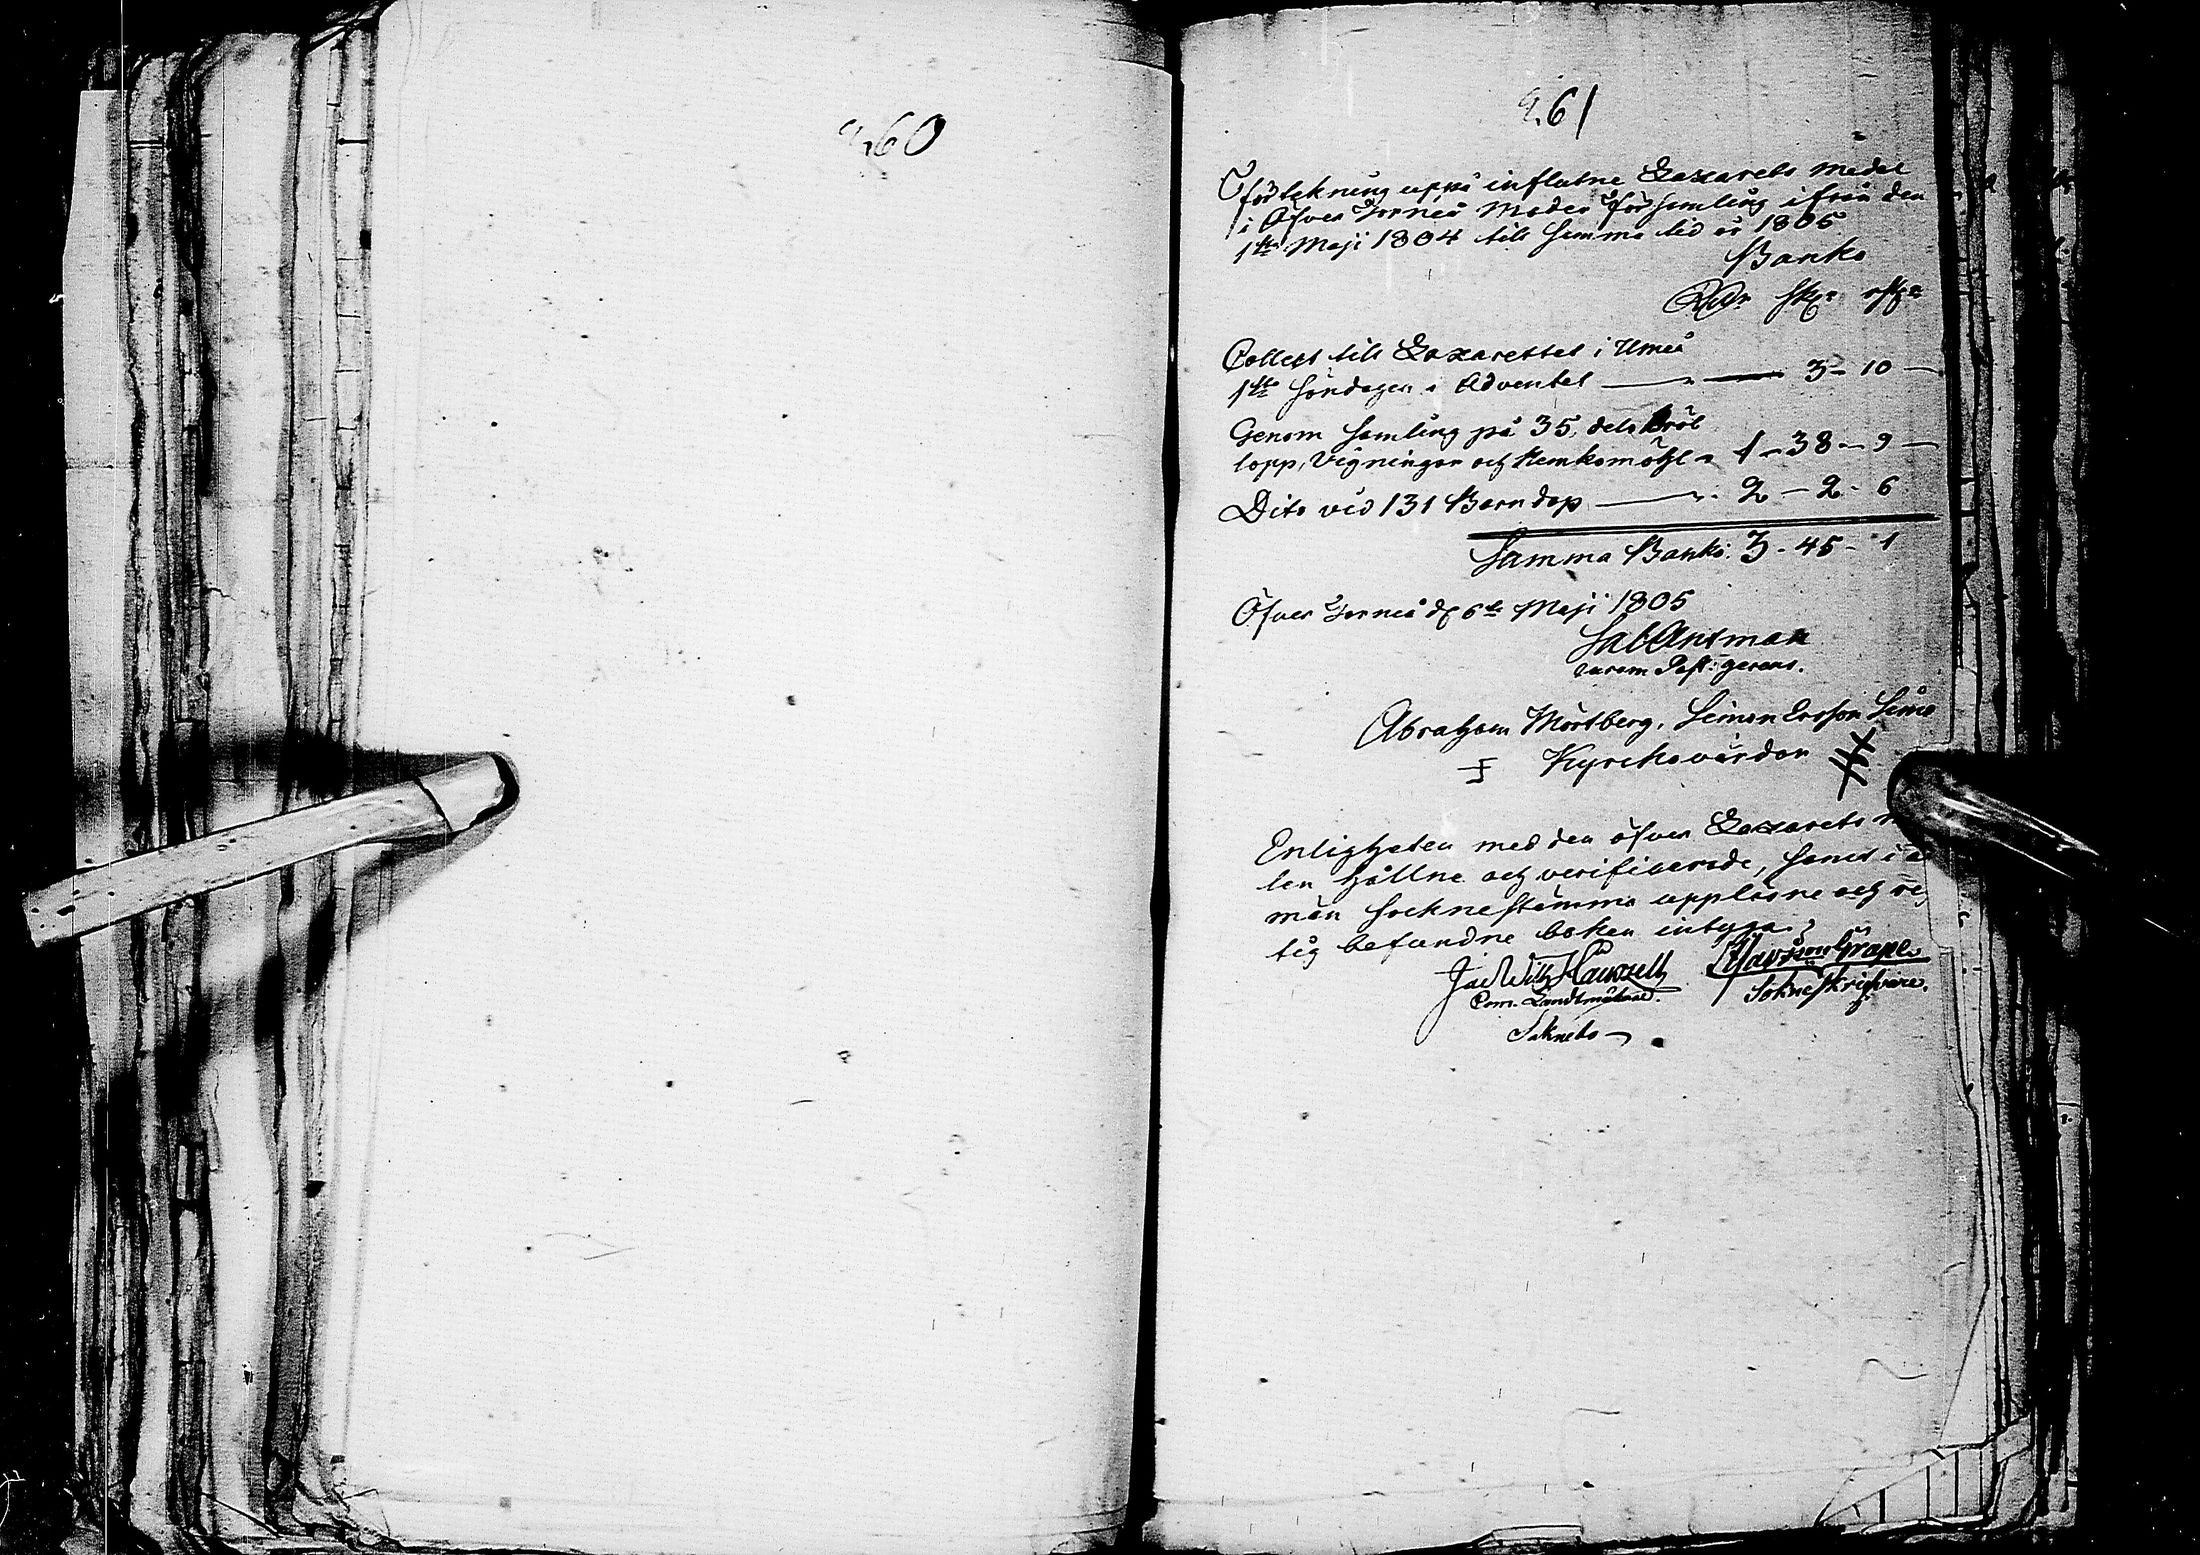 260
261
Förtekning uppå influtne Lazarets Medel
i Öfver Torneå Moder Församling ifrån den
1sta Maji 1804 till samma tid år 1805.
Banko
Rdr sk: rst:
Collect till Lazarettet i Umeå
1sta Söndagen i Adventet — „ — 3 - 10 —
Genom samling på 35, dels Bröl
lopp, Vigningar och Hemkomöhl „ 1 - 38 - 9 —
Dito vid 131 Barndop — „. 2 - 2 - 6
Summa Banko: 3 - 45 - 1
Öfver Torneå d. 6te Maji 1805
Sal Antman
curam Past: gerens.
Abraham Mörtberg, Simon Ersson
Kyrckovärdar
Enligheten med den öfver Lazarets
len hållne och verificerade, samt i
män Socknestämma uppläsne och
tig befundne boken intyga
Jac Wilh Hackzell Grape
Com. Landtmätare. Sokneskrifvare.